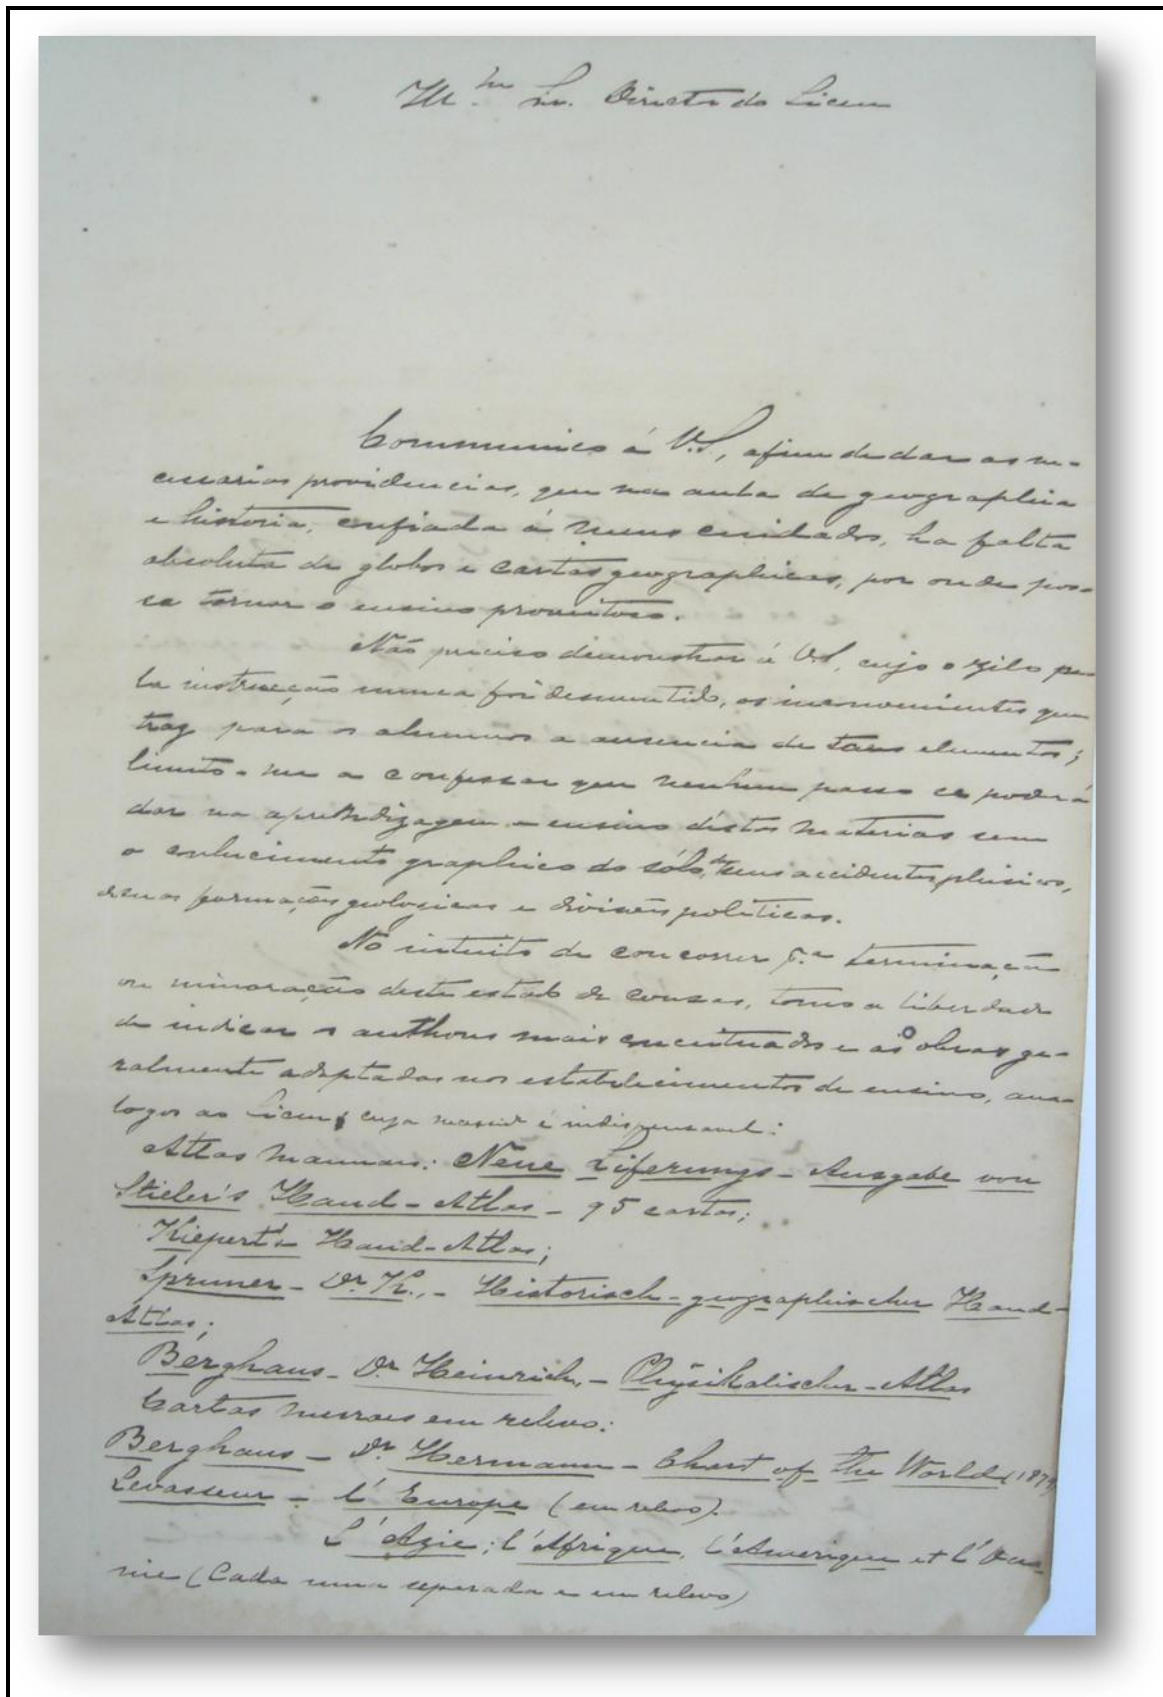 Ill.mo Sr. Director do Liceu
Communico á V.S., afim de dar as ne-
cessarias providencias, que na aula de geographia
e historia, confiada á meus cuidados, ha falta
absoluta de globos e cartas geographicas, por onde pos-
sa tornar o ensino proveitoso.
Não preciso demonstrar á V.S., cujo o zêlo pe-
la instrucção nunca foi desmentido, os inconvenientes que
traz para os alumnos a ausencia de taes elementos;
limito-me a confessar que nenhum passo se poderá
dar na aprendizagem e ensino destas materias sem
o conhecimento graphico do sólo, de seus accidentes phisicos,
de suas formações geologicas e divisões politicas.
No intuito de concorrer p.a terminação
ou minoração deste estado de cousas, tomo a liberdade
de indicar os authores mais conceituados e as obras ge-
ralmente adoptadas nos estabelecimentos de ensino, ana-
logos ao Liceu, cuja é indispensavel:
Atlas manuaes: Neue Liferungs-Ausgabe von
Stieler's Hand-Atlas - 95 cartas;
Kiepert's Hand-Atlas;
Spruner - Dr. K., - Historisch-geographischer Hand-
Atlas;
Berghaus - Dr. Heinrich, - Physikalischer-Atlas
Cartas muraes em relevo:
Berghaus - Dr. Hermann - Chart of the World (1879)
Levasseur - l'Europe (em relevo).
L'Azie; l'Afrique, l'Amerique et l'Ocea-
nie (Cada uma separada e em relevo)